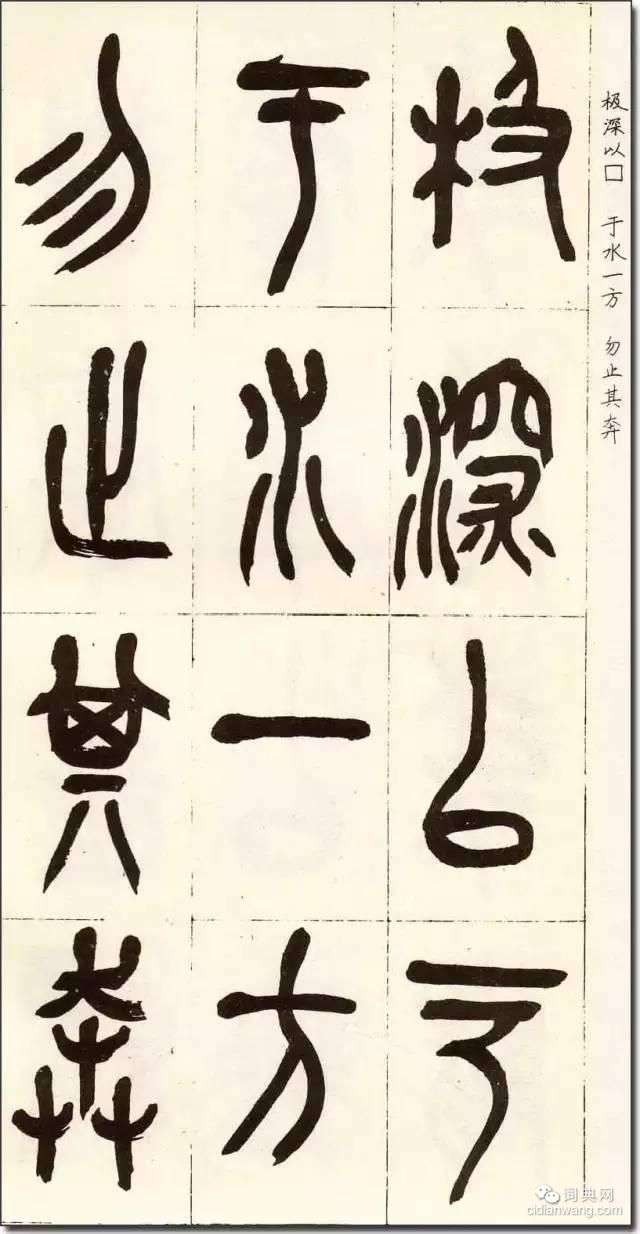 极深以□ 于水一方 勿止其奔
极深以
于水一方
勿止其奔
词典网
cidianwang.com